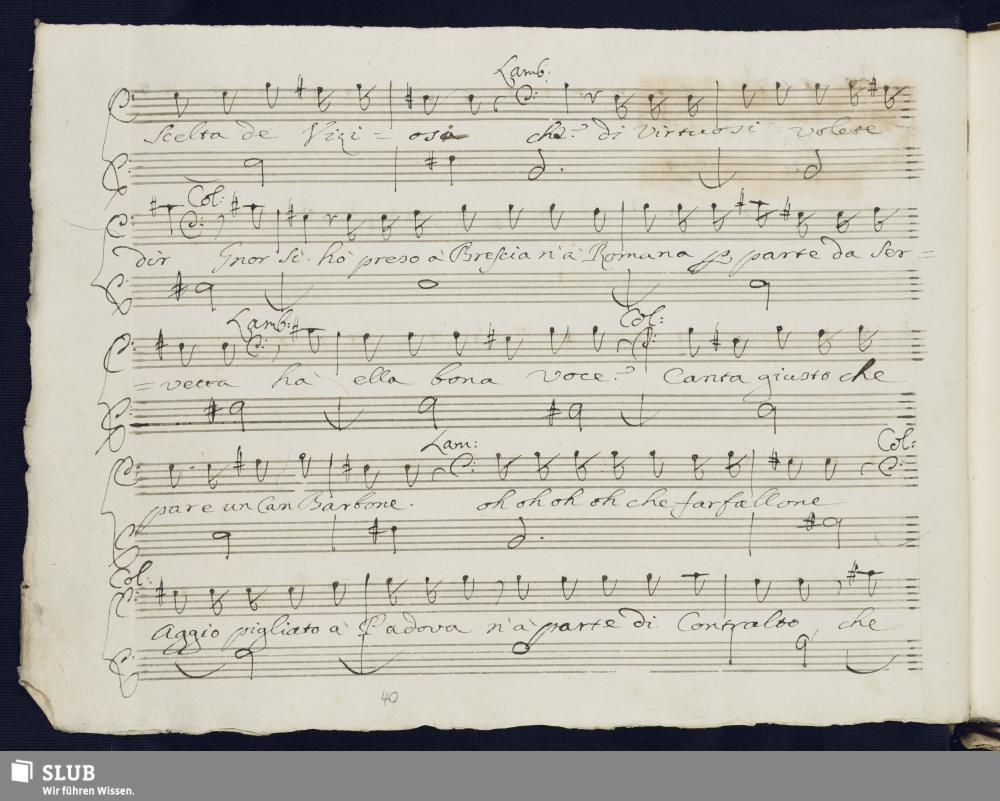 Lamb:
Scelta de Vizi = osa che? di Virtuosi volete
Col:
dir Gnor Si. ho preso à Brescia n'à Romana p parte da Ser=
Lamb: Col:
=vetta ha ella bona voce? Canta giusto che
Lam: Col:
pare un Can Barbone. oh oh oh oh che farfallone
Col:
Aggio pigliato à Padova n'à parte di Contralto, che
40
SLUB
Wir führen Wissen.